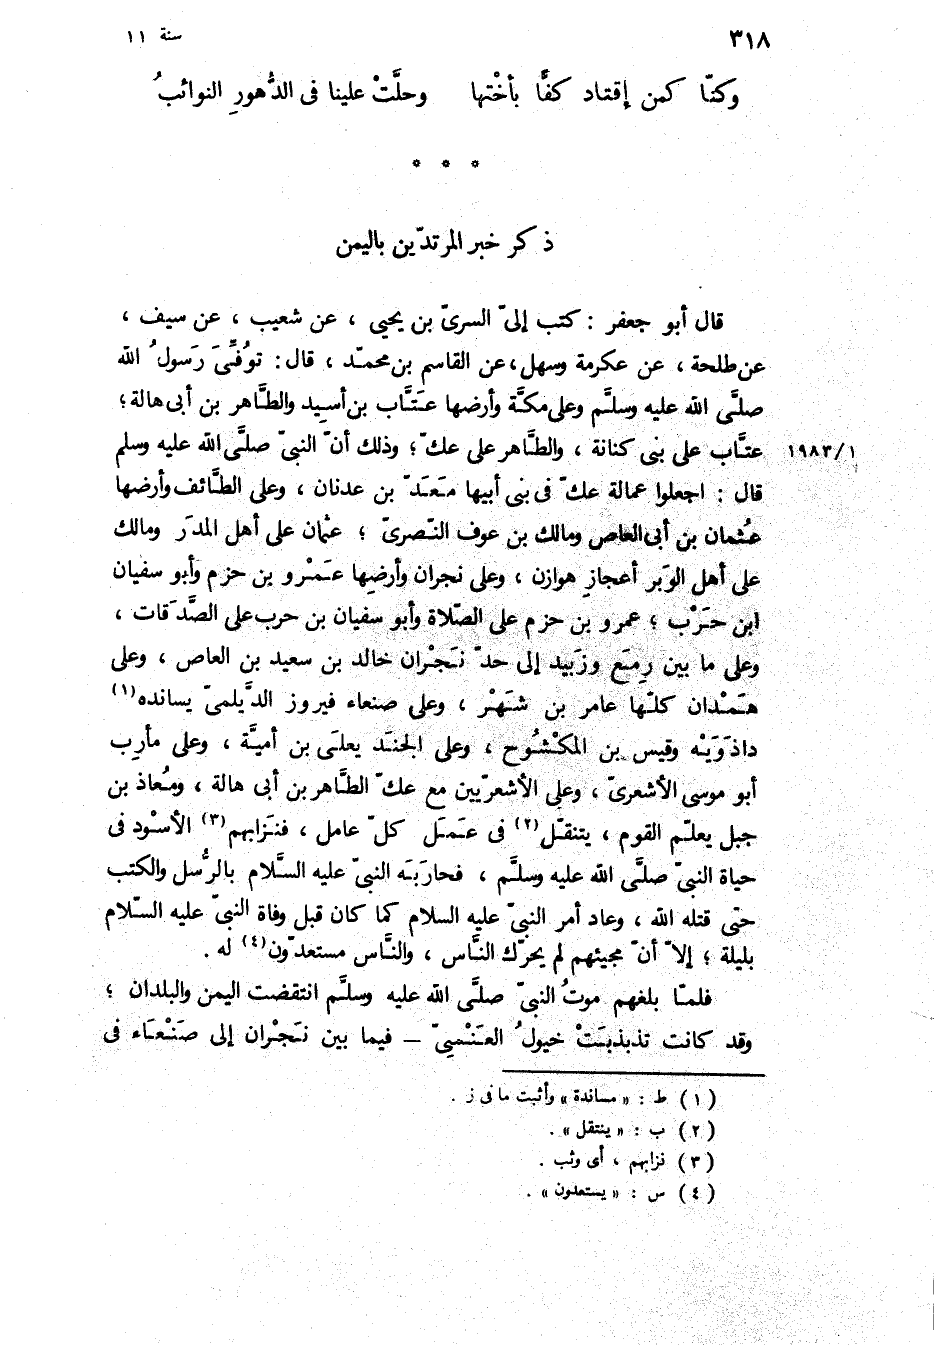 ٣١٨ سنة ١١
وكنّا كمن إقتاد كفًّا بأخْتها وحلَّتْ علينا فى الدُّهورِ النوائبُ
* * *
ذكر خبر المرتدّين باليمن
قال أبو جعفر : كتب إلىّ السرىّ بن يحيى ، عن شعيب ، عن سيف ،
عن طلحة ، عن عكرمة وسهل ، عن القاسم بن محمّد ، قال : توُفِّىَ رَسولُ الله
صلَّى الله عليه وسلَّم وعلى مكَّة وأرضها عَتَّاب بن أسيد والطَّاهر بن أبى هالة ؛
عتَّاب على بنى كنانة ، والطَّاهر على عكّ ؛ وذلك أنّ النبىّ صلَّى الله عليه وسلم ١٩٨٣/١
قال : اجعلوا عمالة عكّ فى بنى أبيها مَعَدّ بن عدنان ، وعلى الطَّائف وأرضها
عُثمان بن أبى العاص ومالك بن عوف النَّصرىّ ؛ عثمان على أهل المدَر ومالك
على أهل الوَبر أعجازِ هوازن ، وعلى نجران وأرضِها عَمْرو بن حزم وأبو سفيان
ابن حَرْب ؛ عمرو بن حزم على الصّلاة وأبو سفيان بن حرب على الصَّدَقات ،
وعلى ما بين رِمَع وزَبيد إلى حدّ نَجْران خالد بن سعيد بن العاص ، وعلى
هَمْدان كلّها عامر بن شَهْر ، وعلى صنعاء فيروز الدَّيلمىّ يسانده(١)
داذَوَيْه وقيس بن المكْشُوح ، وعلى الجنَد يعلَى بن أميَّة ، وعلى مأرِب
أبو موسى الأشعرىّ ، وعلى الأشعرّيين مع عكّ الطَّاهر بن أبى هالة ، ومُعاذ بن
جبل يعلّم القوم ، يتنقّل(٢) فى عَمَل كلّ عامل ، فنَزابهم(٣) الأسْود فى
حياة النبىّ صلَّى الله عليه وسلَّم ، فحارَبَه النبىّ عليه السَّلام بالرُّسل والكتب
حتّى قتله الله ، وعاد أمر النبىّ عليه السلام كما كان قبل وفاة النبىّ عليه السّلام
بليلة ؛ إلاّ أنّ مجيئهم لم يحرّك النَّاس ، والنَّاس مستعدّون(٤) له .
فلمّا بلغهم موتُ النبىّ صلَّى الله عليه وسلَّم انتقضت اليمن والبلدان ؛
وقد كانت تذبذبَتْ خيولُ العَنْسِىّ – فيما بين نَجْران إلى صَنْعَاء فى
(١) ط : « مساندة » وأثبت ما فى ز .
(٢) ب : « ينتقل » .
(٣) نزابهم ، أى وثب .
(٤) س : « يستعدون » .